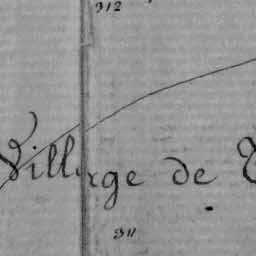 312
Village de
311